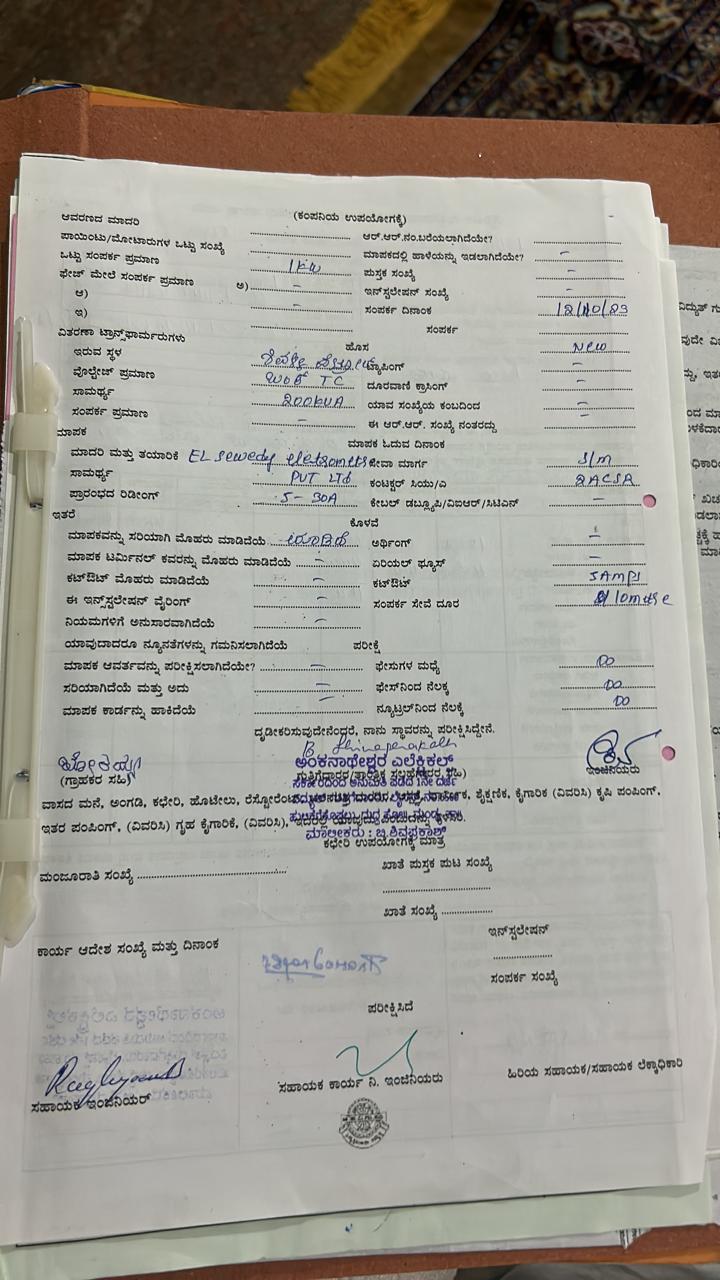 (ಕಂಪನಿಯ ಉಪಯೋಗಕ್ಕೆ)
ಆವರಣದ ಮಾದರಿ ಆರ್.ಆರ್.ನಂ.ಬರೆಯಲಾಗಿದೆಯೇ?
ಪಾಯಿಂಟು/ಮೋಟಾರುಗಳ ಒಟ್ಟು ಸಂಖ್ಯೆ ಮಾಪಕದಲ್ಲಿ ಹಾಳೆಯನ್ನು ಇಡಲಾಗಿದೆಯೇ? –
ಒಟ್ಟು ಸಂಪರ್ಕ ಪ್ರಮಾಣ 1KW ಪುಸ್ತಕ ಸಂಖ್ಯೆ –
ಫೇಜ್ ಮೇಲೆ ಸಂಪರ್ಕ ಪ್ರಮಾಣ ಅ) – ಇನ್‌ಸ್ಟಲೇಷನ್ ಸಂಖ್ಯೆ –
ಆ) – ಸಂಪರ್ಕ ದಿನಾಂಕ 12/10/23
ಇ) ಸಂಪರ್ಕ
ವಿತರಣಾ ಟ್ರಾನ್ಸ್‌ಫಾರ್ಮರುಗಳು ಹೊಸ New
ಇರುವ ಸ್ಥಳ ಟ್ಯಾಪಿಂಗ್ –
ವೊಲ್ಟೇಜ್ ಪ್ರಮಾಣ TC ದೂರವಾಣಿ ಕ್ರಾಸಿಂಗ್ –
ಸಾಮರ್ಥ್ಯ 200KVA ಯಾವ ಸಂಖ್ಯೆಯ ಕಂಬದಿಂದ –
ಸಂಪರ್ಕ ಪ್ರಮಾಣ – ಈ ಆರ್.ಆರ್. ಸಂಖ್ಯೆ ನಂತರದ್ದು
ಮಾಪಕ ಮಾಪಕ ಓದುವ ದಿನಾಂಕ
ಮಾದರಿ ಮತ್ತು ತಯಾರಿಕೆ EL sewedy ಸೇವಾ ಮಾರ್ಗ S/M
ಸಾಮರ್ಥ್ಯ PVT Ltd ಕಂಟಕ್ಟರ್ ಸಿಯು/ಎ 2ACSR
ಪ್ರಾರಂಭದ ರಿಡೀಂಗ್ 5-30A ಕೇಬಲ್ ಡಬ್ಲ್ಯೂಪಿ/ವಿಐಆರ್/ಸಿಟಿಎನ್ –
ಇತರೆ ಕೊಳವೆ
ಮಾಪಕವನ್ನು ಸರಿಯಾಗಿ ಮೊಹರು ಮಾಡಿದೆಯೆ ಮಾಡಿದೆ ಅರ್ಥಿಂಗ್ –
ಮಾಪಕ ಟರ್ಮಿನಲ್ ಕವರನ್ನು ಮೊಹರು ಮಾಡಿದೆಯೆ – ಏರಿಯಲ್ ಫ್ಯೂಸ್ –
ಕಟ್‌ಔಟ್ ಮೊಹರು ಮಾಡಿದೆಯೆ – ಕಟ್‌ಔಟ್ 5AMPS
ಈ ಇನ್‌ಸ್ಟಲೇಷನ್ ವೈರಿಂಗ್ – ಸಂಪರ್ಕ ಸೇವೆ ದೂರ
ನಿಯಮಗಳಿಗೆ ಅನುಸಾರವಾಗಿದೆಯೆ –
ಯಾವುದಾದರೂ ನ್ಯೂನತೆಗಳನ್ನು ಗಮನಿಸಲಾಗಿದೆಯೆ ಪರೀಕ್ಷೆ
ಮಾಪಕ ಆವರ್ತವನ್ನು ಪರೀಕ್ಷಿಸಲಾಗಿದೆಯೇ? – ಫೇಸುಗಳ ಮಧ್ಯೆ DO
ಸರಿಯಾಗಿದೆಯೆ ಮತ್ತು ಅದು – ಫೇಸ್‌ನಿಂದ ನೆಲಕ್ಕೆ DO
ಮಾಪಕ ಕಾರ್ಡನ್ನು ಹಾಕಿದೆಯೆ – ನ್ಯೂಟ್ರಲ್‌ನಿಂದ ನೆಲಕ್ಕೆ DO
ದೃಡೀಕರಿಸುವುದೇನೆಂದರೆ, ನಾನು ಸ್ಥಾವರನ್ನು ಪರೀಕ್ಷಿಸಿದ್ದೇನೆ.
ಅಂಕನಾಥೇಶ್ವರ ಎಲೆಕ್ಟ್ರಿಕಲ್
(ಗ್ರಾಹಕರ ಸಹಿ) ಇಂಜಿನಿಯರು
ವಾಸದ ಮನೆ, ಅಂಗಡಿ, ಕಛೇರಿ, ಹೊಟೇಲು, ಶೈಕ್ಷಣಿಕ, ಕೈಗಾರಿಕ (ವಿವರಿಸಿ) ಕೃಷಿ ಪಂಪಿಂಗ್,
ಇತರ ಪಂಪಿಂಗ್, (ವಿವರಿಸಿ) ಗೃಹ ಕೈಗಾರಿಕೆ, (ವಿವರಿಸಿ),
ಮಾಲೀಕರು : ಬಿ.ಶಿವಪ್ರಕಾಶ್
ಕಛೇರಿ ಉಪಯೋಗಕ್ಕೆ ಮಾತ್ರ
ಮಂಜೂರಾತಿ ಸಂಖ್ಯೆ ಖಾತೆ ಪುಸ್ತಕ ಪುಟ ಸಂಖ್ಯೆ
ಖಾತೆ ಸಂಖ್ಯೆ
ಕಾರ್ಯ ಆದೇಶ ಸಂಖ್ಯೆ ಮತ್ತು ದಿನಾಂಕ ಇನ್‌ಸ್ಟಲೇಷನ್
ಸಂಪರ್ಕ ಸಂಖ್ಯೆ
ಪರೀಕ್ಷಿಸಿದೆ
ಸಹಾಯಕ ಇಂಜಿನಿಯರ್ ಸಹಾಯಕ ಕಾರ್ಯ ನಿ. ಇಂಜಿನಿಯರು ಹಿರಿಯ ಸಹಾಯಕ/ಸಹಾಯಕ ಲೆಕ್ಕಾಧಿಕಾರಿ